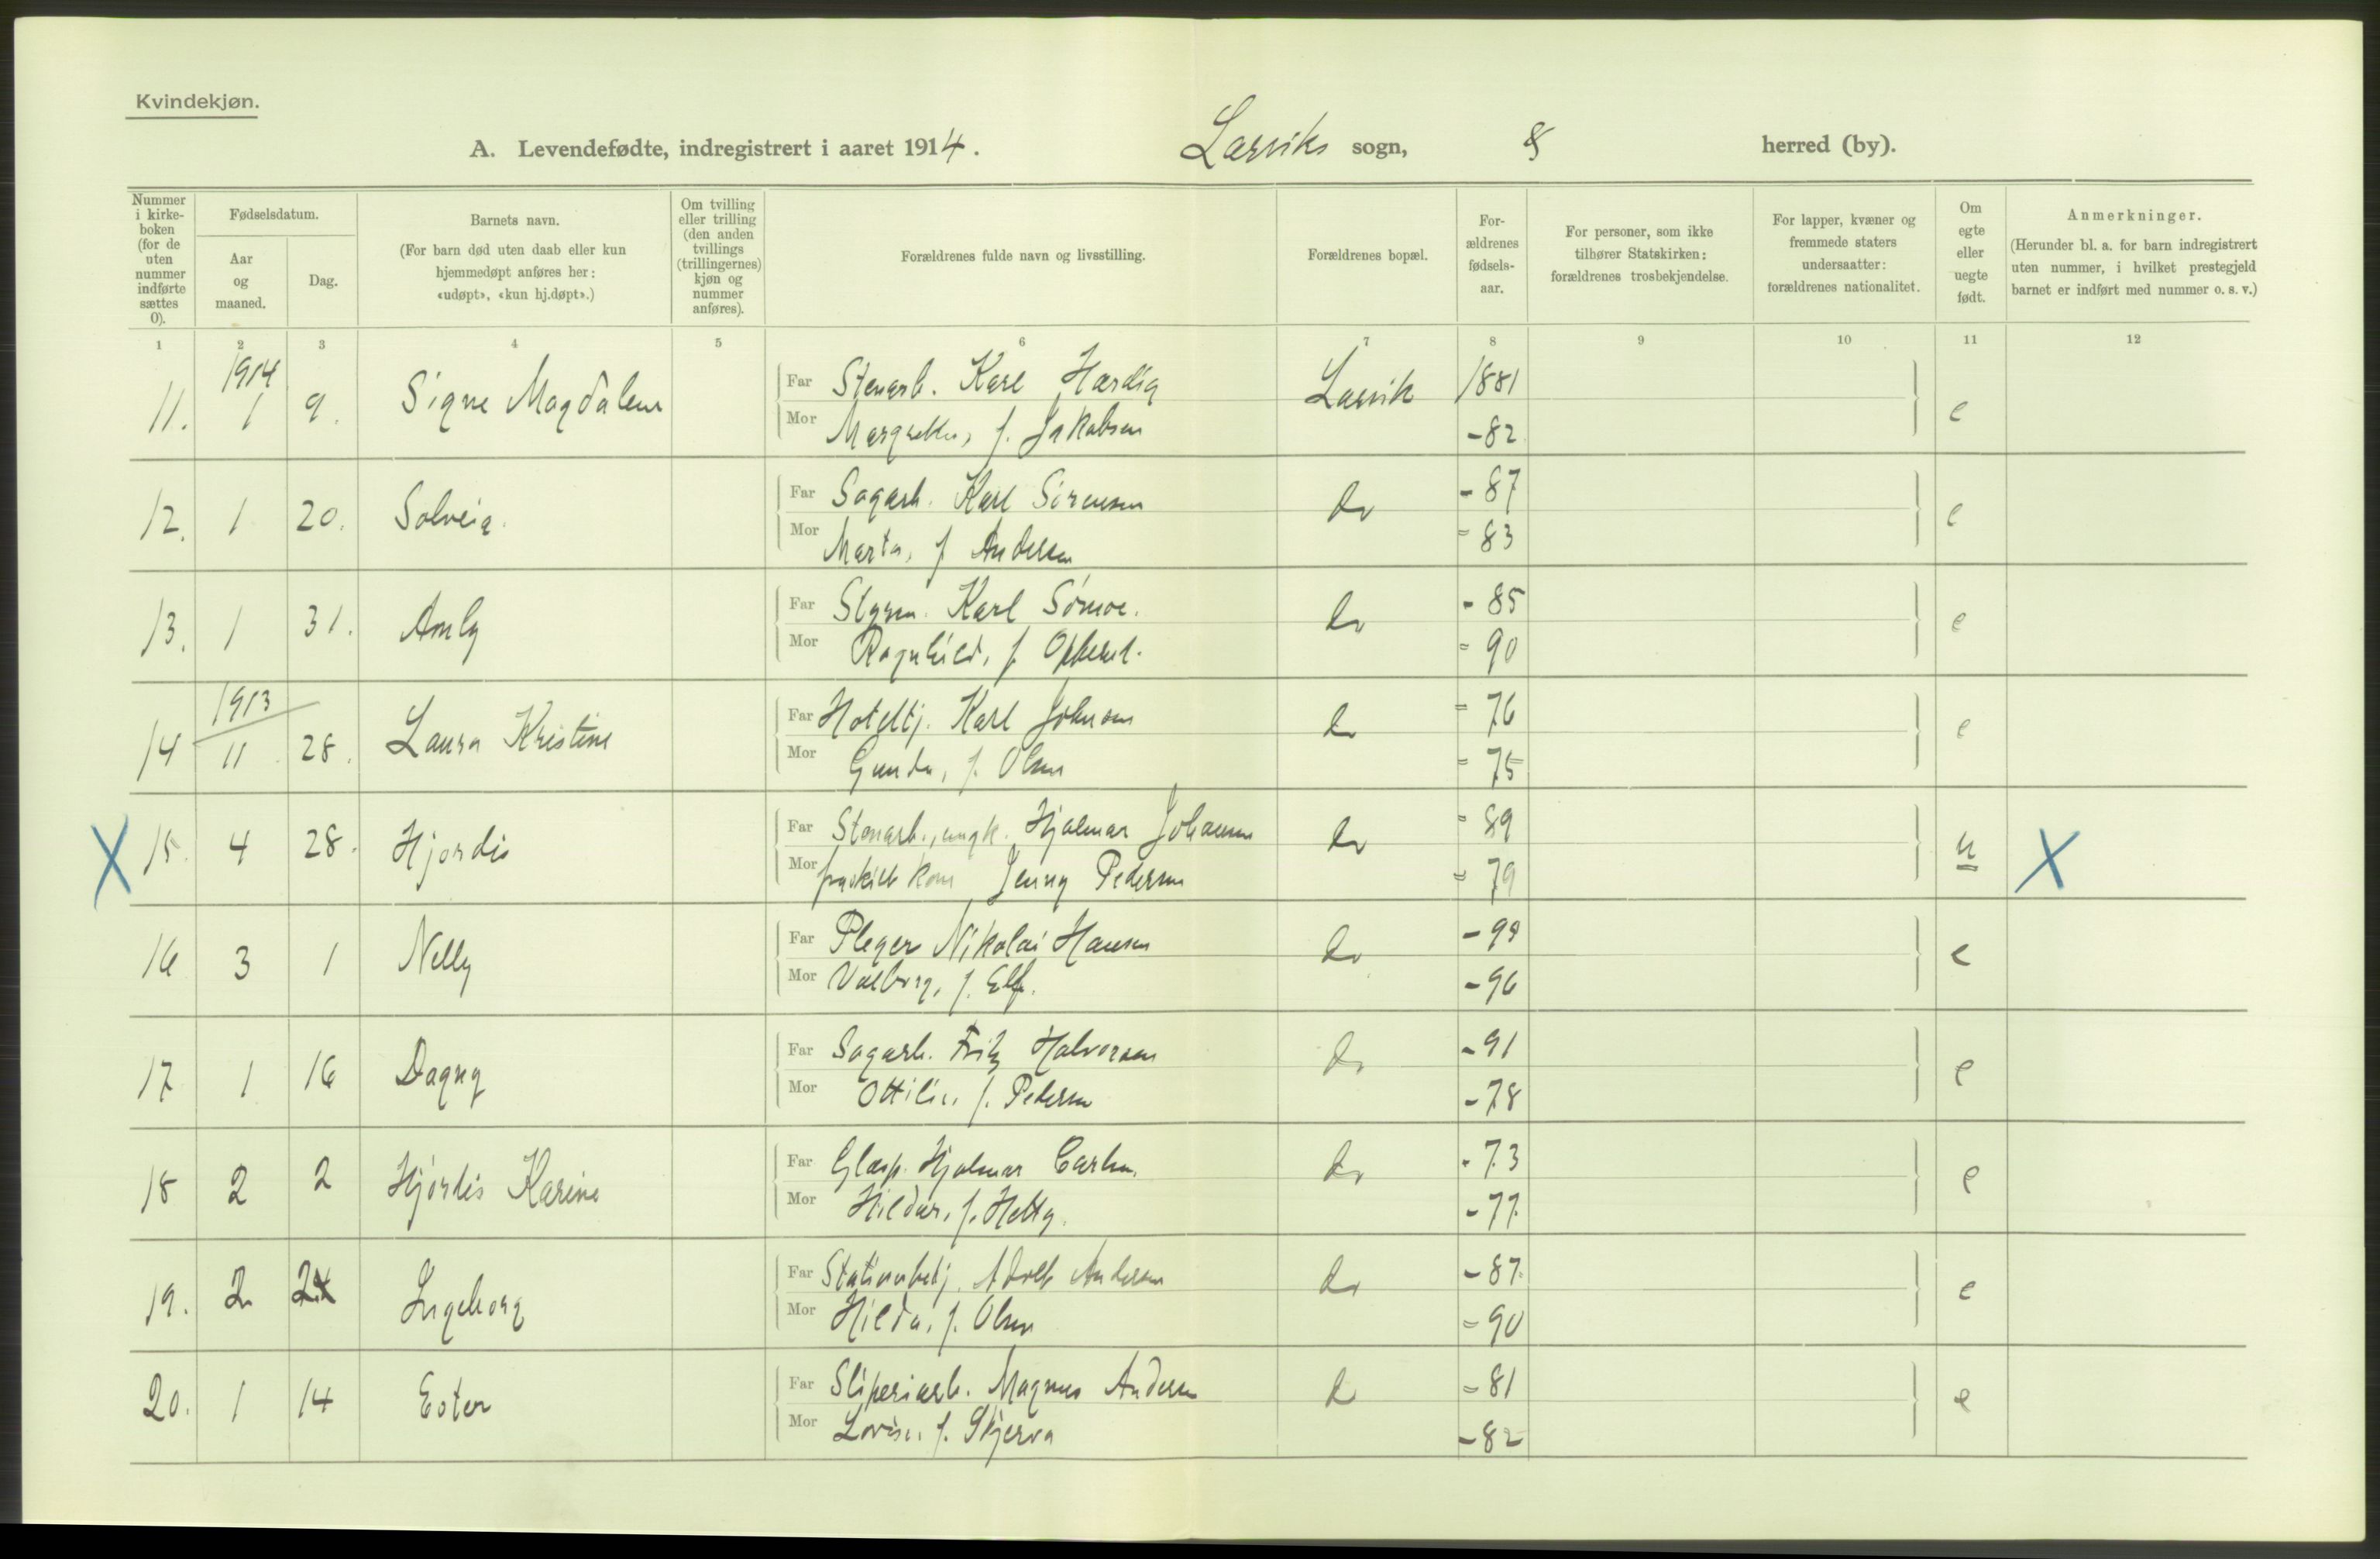 Kvindekjøn.
A. Levendefødte, indregistrert i aaret 1914. Larviks sogn, herred (by).
Nummer i kirke-boken (for de uten nummer indførte sættes 0).
Fødselsdatum.
Aar og maaned.
Dag.
Barnets navn.
(For barn død uten daab eller kun hjemmedøpt anføres her: «udøpt», «kun hj.døpt».)
Om tvilling eller trilling (den anden tvillings (trillingernes) kjøn og nummer anføres).
Forældrenes fulde navn og livsstilling.
Forældrenes bopæl.
For-ældrenes fødsels-aar.
For personer, som ikke tilhører Statskirken: forældrenes trosbekjendelse.
For lapper, kvæner og fremmede staters undersaatter: forældrenes nationalitet.
Om egte eller uegte født.
Anmerkninger.
(Herunder bl. a. for barn indregistrert uten nummer, i hvilket prestegjeld barnet er indført med nummer o. s. v.)
1 2 3 4 5 6 7 8 9 10 11 12
11. 1914 1 9. Signe Magdalene Far Stenarb. Karl Hardig Larvik 1881 e
Mor Margrethe, f. Jakobsen -82
12. 1 20. Solveig Far Sagarb. Karl Sörensen do -87 e
Mor Marta, f Andersen - 83
13. 1 31. Far Styrm. Karl do - 85 e
Mor Ragnhild, f. = 90
14 1913 11 28. Laura Kristine Far Hoteltj. Karl Johnsen do = 76 e
Mor Gunda, f. Olsen = 75
X 15. 4 28. Hjördis Far Stenarb., ungk. Hjalmar Johansen do = 89 u X
Mor fraskilt kone Jenny Pedersen = 79
16 3 1 Nelly Far Pleger Nikolai Hansen do e
Mor Valborg, f. -96
17 1 16 Dagny Far Sagarb. Fritz Halvorsen do -91 e
Mor Ottilie, f. Pedersen -78
18 2 2 Hjördis Karine Far Hjalmar Carlsen do -73 e
Mor f. -77
19. 2 Ingeborg Far Stationsbetj. Adolf Andersen do -87 e
Mor Hilda, f. Olsen = 90
20. 1 14 Ester Far Sliperiarb. Magnus Andersen do = 81 e
Mor Lovise, f. Skjerva -82